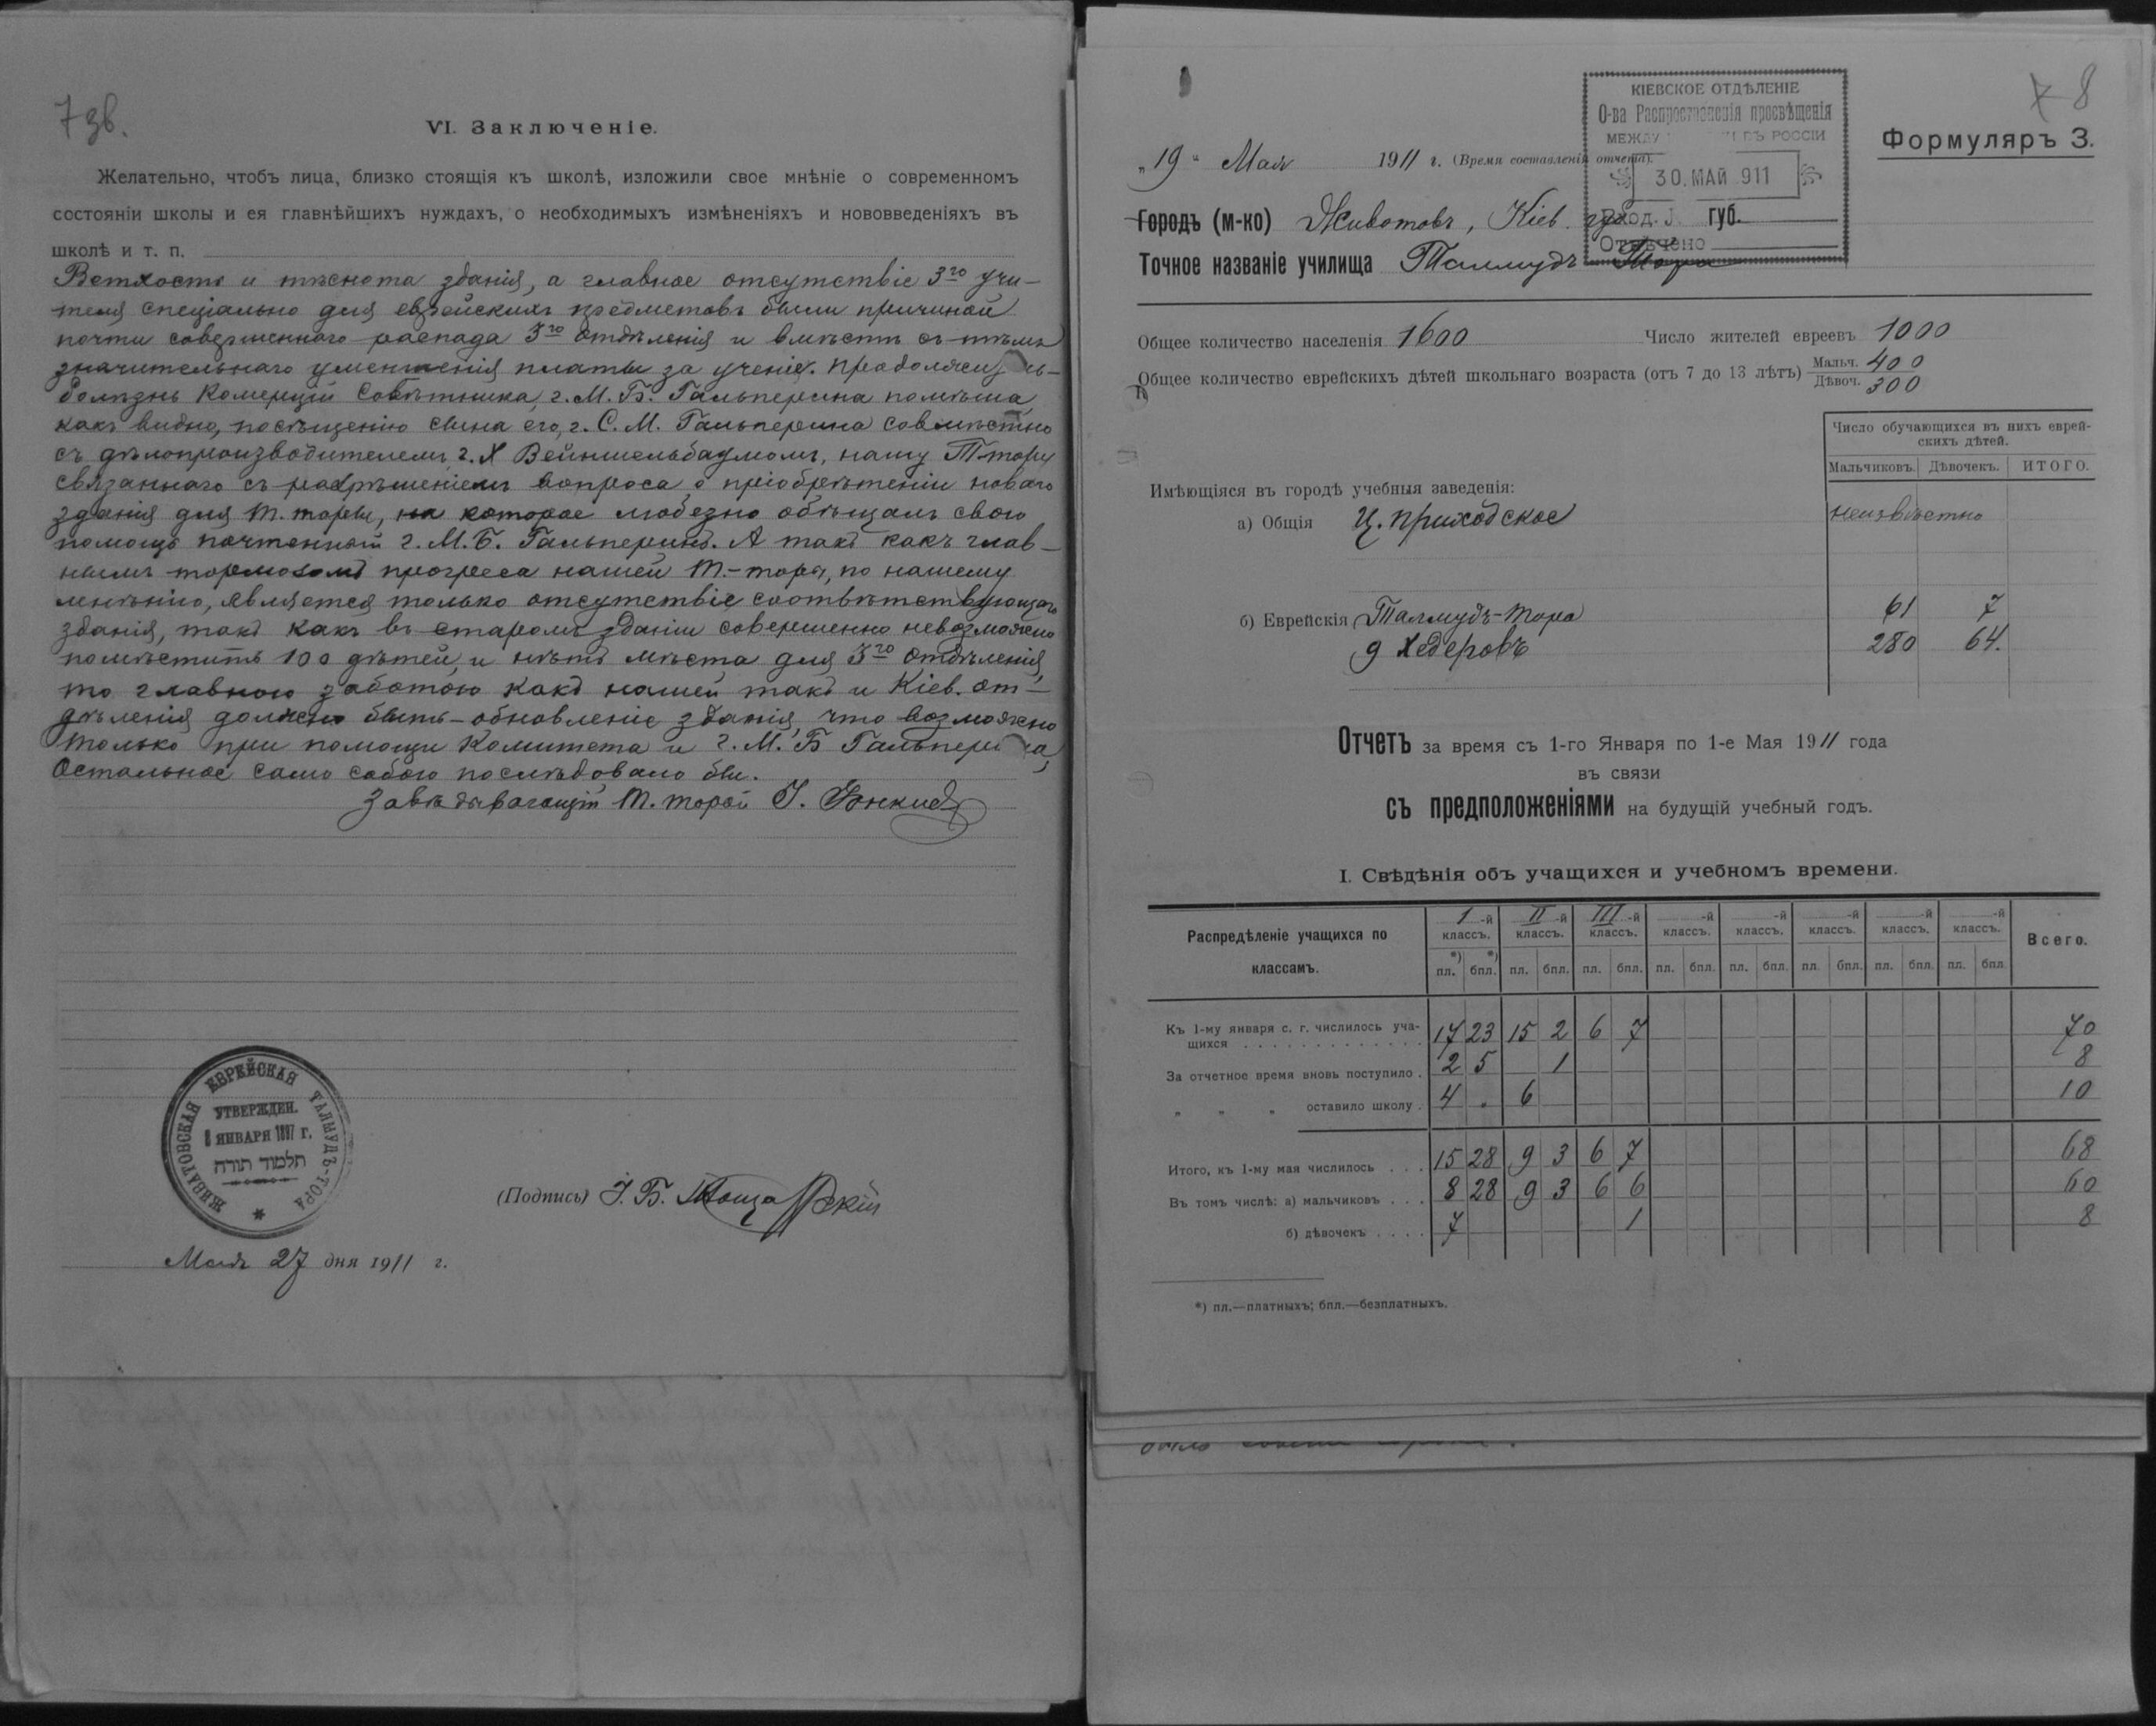 7 зв.
VI. Заключеніе.
Желательно, чтобъ лица, близко стоящія къ школѣ, изложили свое мнѣніе о современномъ
состояніи школы и ея главнѣйшихъ нуждахъ, о необходимыхъ измѣненіяхъ и нововведеніяхъ въ
школѣ и т. п.
Ветхость и тѣснота зданія, а главное отсутствіе 3го учи-
теля спеціально для еврейскихъ предметовъ были причиной
почти совершеннаго распада 3го отдѣленія и вмѣстѣ съ тѣмъ
значительнаго уменшенія платы за ученіе.
болѣзнь Комерціи Совѣтника, г. М. Б. Гальперина помѣша
какъ видно, посѣщенію сына его, г. С. М. Гальперина совмѣстно
съ дѣлопроизводителемъ г. Х Вейншельбаумомъ, нашу Т-тору
связаннаго съ разрѣшеніемъ вопроса о пріобрѣтеніи новаго
зданія для Т. торы, на которое любезно обѣщалъ свою
помощь почтенный г. М. Б. Гальперинъ. А такъ какъ глав-
нымъ тормозомъ прогресса нашей Т.-торы, по нашему
мнѣнію, является только отсутствіе соотвѣтствующаго
зданія, такъ какъ въ старомъ зданіи совершенно невозможно
помѣстить 100 дѣтей, и нѣтъ мѣста для 3го отдѣленія,
то главною заботою какъ нашей такъ и Кіев. от-
дѣленія должно быть - обновленіе зданія, что возможно
только при помощи Комитета и г. М. Б Гальпери а,
Остальное само собою послѣдовало бы.
Завѣдывающій Т. торой
ЖИВАТОВСКАЯ ЕВРЕЙСКАЯ ТАЛМУДЪ-ТОРА
УТВЕРЖДЕН.
8 ЯНВАРЯ 1897 г.
תלמוד תורה
(Подпись) І. Б.
Мая 27 дня 1911 г.
7 8
КІЕВСКОЕ ОТДѢЛЕНІЕ
О-ва Распространенія просвѣщенія
МЕЖДУ ВЪ РОССІИ
30. МАЙ 911
Вход. J.
Отвѣчено
Формуляръ 3.
„19“ Мая 1911 г. (Время составленія отчета).
Городъ (м-ко) Животовъ, Кіев. губ. губ.
Точное названіе училища Талмудъ Тора
Общее количество населенія 1600 Число жителей евреевъ 1000
Общее количество еврейскихъ дѣтей школьнаго возраста (отъ 7 до 13 лѣтъ) Мальч. 400
Дѣвоч. 300
Число обучающихся въ нихъ еврей-
скихъ дѣтей.
Мальчиковъ. Дѣвочекъ. ИТОГО.
Имѣющіяся въ городѣ учебныя заведенія:
а) Общія Ц. приходское неизвѣстно
б) Еврейскія Талмудъ-тора 61 7
9 Хедеровъ 280 64.
Отчетъ за время съ 1-го Января по 1-е Мая 1911 года
въ связи
съ предположеніями на будущій учебный годъ.
I. Свѣдѣнія объ учащихся и учебномъ времени.
Распредѣленіе учащихся по классамъ. I -й классъ. II -й классъ. III -й классъ. -й классъ. -й классъ. -й классъ. -й классъ. -й классъ. Всего.
*) пл. *) бпл. пл. бпл. пл. бпл. пл. бпл. пл. бпл. пл. бпл. пл. бпл. пл. бпл.
Къ 1-му января с. г. числилось уча-
щихся . . . . 17 23 15 2 6 7 70
За отчетное время вновь поступило . 2 5 1 8
„ „ „ оставило школу . 4 . 6 10
Итого, къ 1-му мая числилось . . . 15 28 9 3 6 7 68
Въ томъ числѣ: а) мальчиковъ . . . 8 28 9 3 6 6 60
б) дѣвочекъ . . . . 7 1 8
*) пл.—платныхъ; бпл.—безплатныхъ.